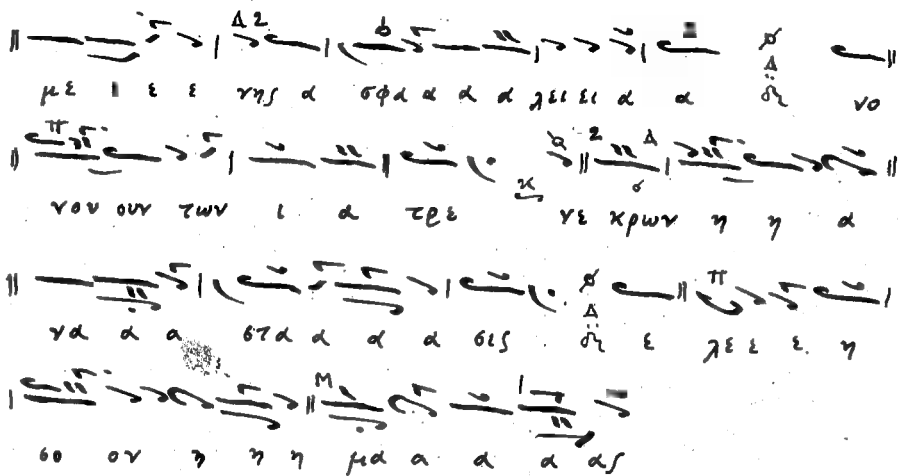 με ι ε ε νης α σφα α α α λει ει α α νο
νου ουν των ι α τρε νε κρων η η α
να α α στα α α α σις ε λε ε ε η
σο ον η η η μα α α α ας